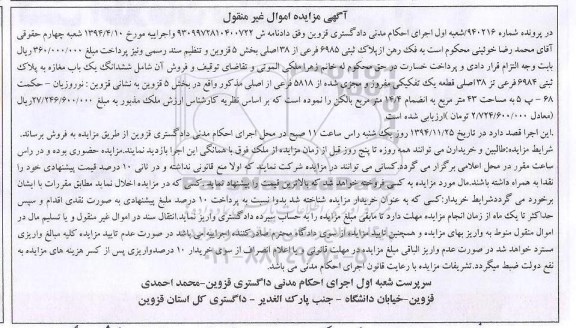 آگهی مزایده اموال غیر منقول
در پرونده شماره ۹۴۰۲۱۶/شعبه اول اجرای احکام مدنی دادگستری قزوین وفق دادنامه ش ۹۳۰۹۹۷۲۸۱۰۴۰۰۷۲۲ واجراییه مورخ ۱۳۹۴/۴/۱۰ شعبه چهارم حقوقی
آقای محمد رضا خوئینی محکوم است به فک رهن ازپلاک ثبتی ۶۹۸۵ فرعی از ۳۸اصلی بخش ۵ قزوین و تنظیم سند رسمی ونیز پرداخت مبلغ ۳۶۰/۰۰۰/۰۰۰ریال
بابت وجه التزام قرار دادی و پرداخت خسارت در حق محکوم له خانم زهرا ملکی الموتی و تقاضای توقیف و فروش آن شامل ششدانگ یک باب مغازه به پلاک
ثبتی ۶۹۸۴ فرعی تز ۳۸اصلی قطعه یک تفکیکی مفروز و مجزی شده از ۵۸۱۸ فرعی از اصلی مذکور واقع در بخش ۵ قزوین به نشانی قزوین: نوروزیان - حکمت
۶۸ - پ ۵ به مساحت ۴۳ متر مربع به انضمام ۱۴/۴ متر مربع بالکن را نموده است که بر اساس نظریه کارشناس ارزش ملک مذبور به مبلغ ۲۷/۲۴۶/۶۰۰/۰۰۰ریال
(معادل ۲/۷۲۴/۶۰۰/۰۰۰ تومان )ارزیابی شده است
.این اجرا قصد دارد در تاریخ ۱۳۹۴/۱۱/۲۵ روز یک شنبه راس ساعت ۱۱ صبح در محل اجرای احکام مدنی دادگستری قزوین از طریق مزایده به فروش برساند.
شرایط مزایده:طالبین و خریدارن می توانند همه روزه تا پنج روز قبل از زمان مزایده از ملک فوق با همانگی این اجرا بازدید نمایند.مزایده حضوری بوده و در راس
ساعت مقرر در محل اعلامی برگزار می گردد.کسانی می توانند در مزایده شرکت نمایند که اولا منع قانونی نداشته و در ثانی ۱۰ درصد قیمت پیشنهادی خود را
نقدا به همراه داشته باشند.مال مورد مزایده به کسی فروخته خواهد شد که بالاترین قیمت را پیشنهاد نماید.کسی که در مزایده اخلال نماید مطابق مقررات با ایشان
برخورد می گرددشرایط خریدار:کسی که به عنوان خریدار مزایده شناخته شد بدوا نسبت به پرداخت ۱۰ درصد ملبغ پیشنهادی به صورت نقدی اقدام و سپس
حداکثر تا یک ماه از زمان انجام مزایده مهلت دارد تا مابقی مبلغ مزایده را به حساب سپرده دادگستری واریز نماید.انتقال سند در اموال غیر منقول و یا تسلیم مال در
اموال منقول منوط به واریز بهای مزایده و همچنین تایید مزایده از سوی دادگاه محترم صادرکننده اجراییه می باشد در صورت عدم تایید مزایده کلیه مبالغ واریزی
مسترد خواهد شد در صورت عدم واریز الباقی مبلغ مزایده در مهلت قانونی و یا اعلام انصراف از سوی خریدار ۱۰ درصدواریزی پس از کسر هزینه های مزایده به
نفع دولت ضبط میگردد.تشریفات مزایده با رعایت قانون اجرای احکام مدنی می باشد.
سرپرست شعبه اول اجرای احکام مدنی داگستری قزوین-محمد احمدی
قزوین-خیابان دانشگاه - جنب پارک الغدیر - داگستری کل استان قزوین